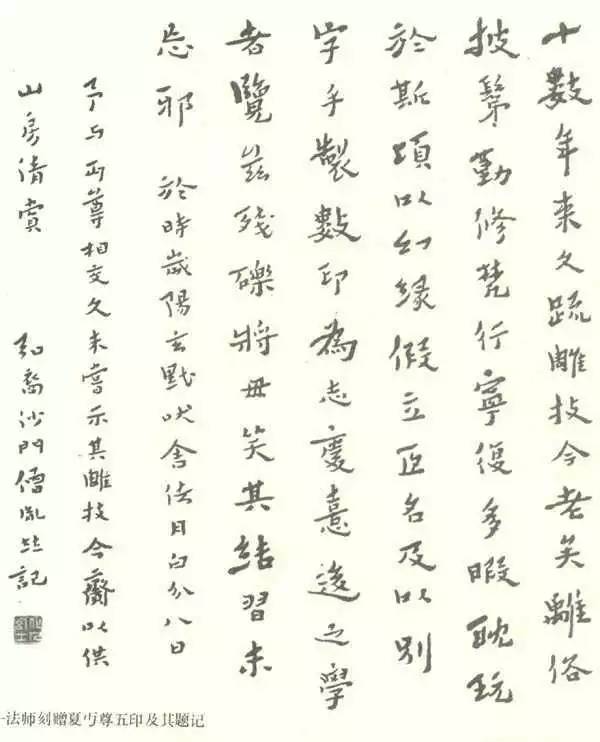 十數年来久疏雕技今老矣離俗
披鬀勤修梵行寧復多暇耽玩
於斯頃以幻緣假立臣名及以別
字手製數印為志慶憙後之學
者覽兹殘礫將毋笑其結習未
忘邪 於時歲陽玄黓吠舍佉月白分八日
予与丏尊相交久未嘗示其雕技今齎以供
山房清賞 弘裔沙門僧胤並記
一法师刻赠夏丏尊五印及其题记